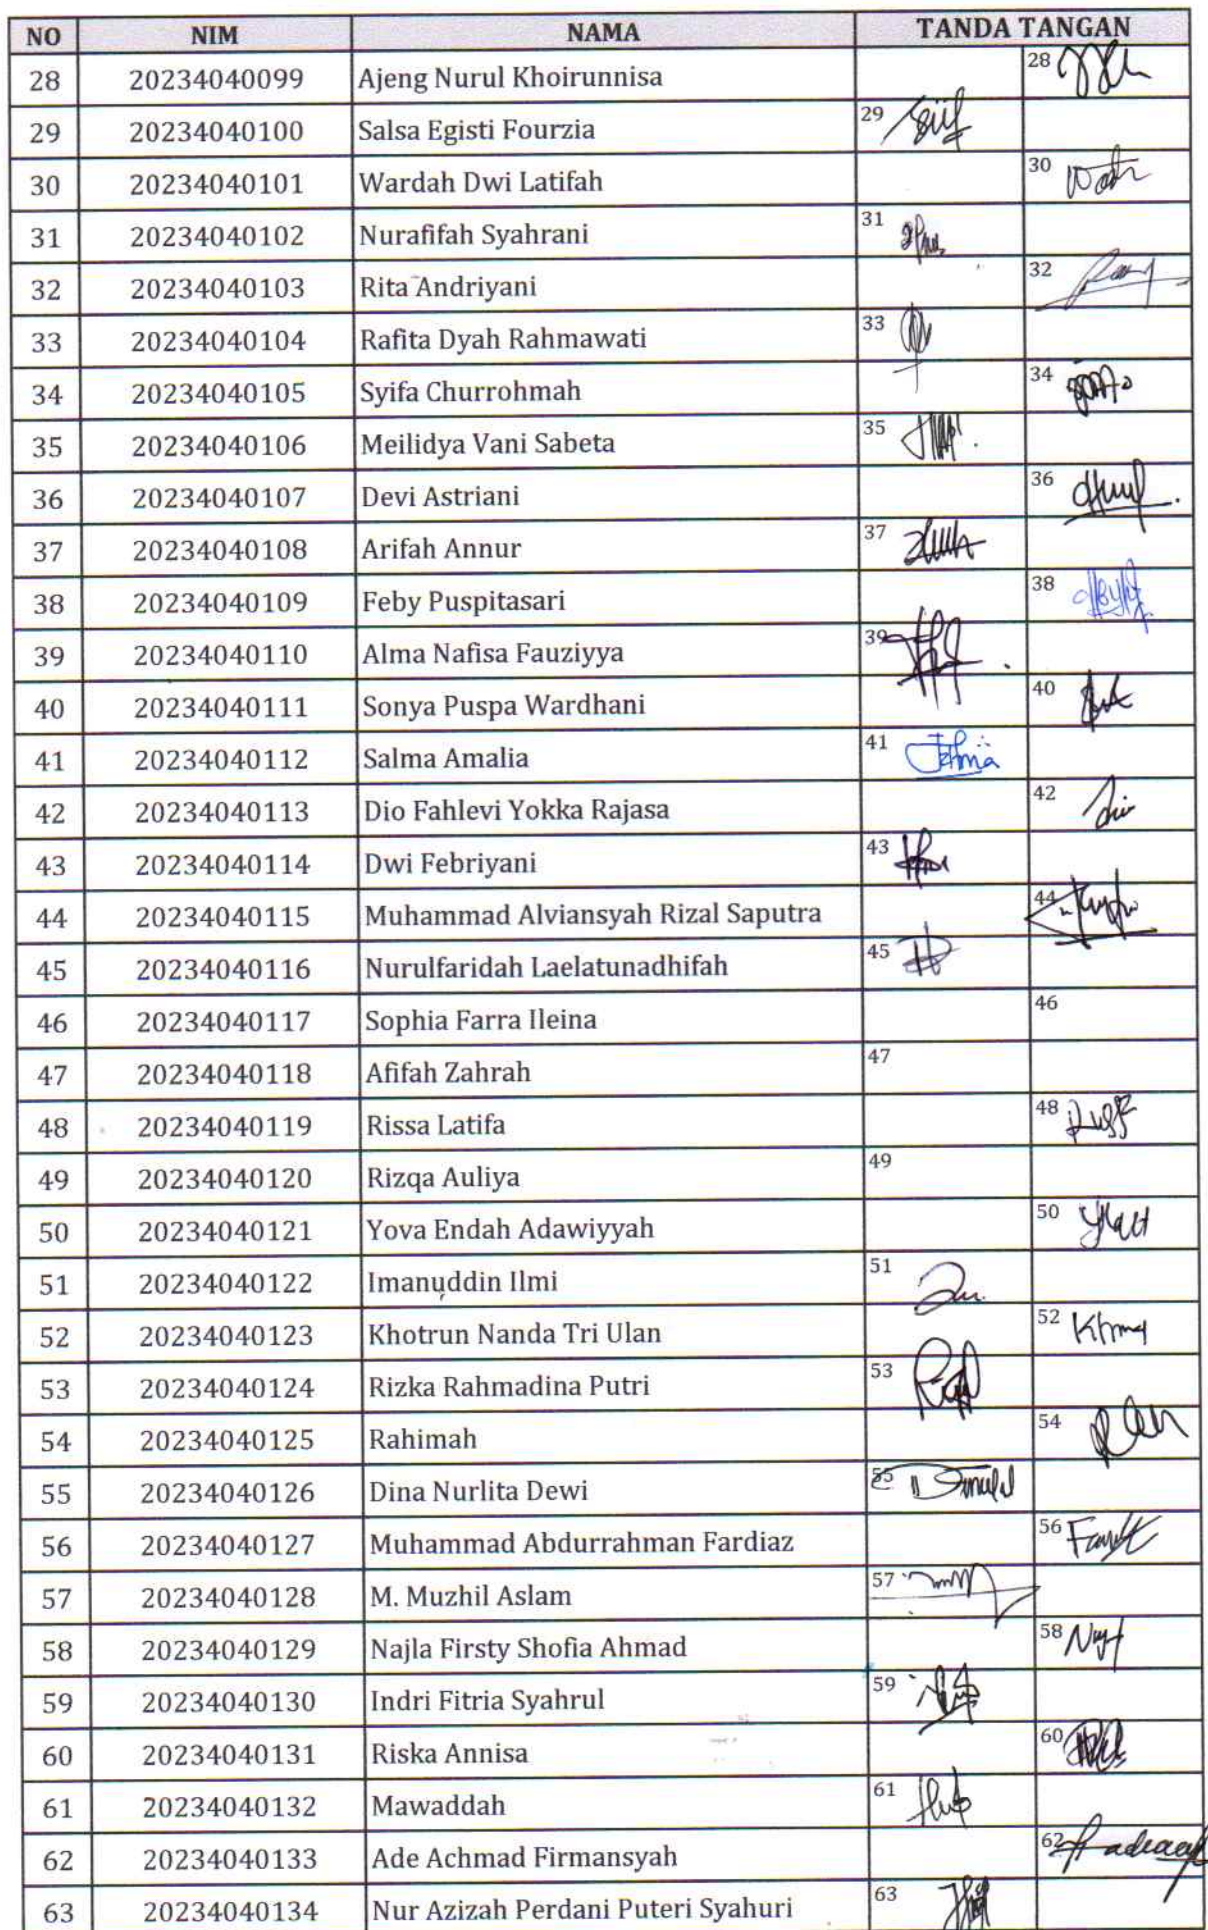 NO NIM NAMA TANDA TANGAN
28 20234040099 Ajeng Nurul Khoirunnisa 28
29 20234040100 Salsa Egisti Fourzia 29
30 20234040101 Wardah Dwi Latifah 30
31 20234040102 Nurafifah Syahrani 31
32 20234040103 Rita Andriyani 32
33 20234040104 Rafita Dyah Rahmawati 33
34 20234040105 Syifa Churrohmah 34
35 20234040106 Meilidya Vani Sabeta 35
36 20234040107 Devi Astriani 36
37 20234040108 Arifah Annur 37
38 20234040109 Feby Puspitasari 38
39 20234040110 Alma Nafisa Fauziyya 39
40 20234040111 Sonya Puspa Wardhani 40
41 20234040112 Salma Amalia 41
42 20234040113 Dio Fahlevi Yokka Rajasa 42
43 20234040114 Dwi Febriyani 43
44 20234040115 Muhammad Alviansyah Rizal Saputra 44
45 20234040116 Nurulfaridah Laelatunadhifah 45
46 20234040117 Sophia Farra Ileina 46
47 20234040118 Afifah Zahrah 47
48 20234040119 Rissa Latifa 48
49 20234040120 Rizqa Auliya 49
50 20234040121 Yova Endah Adawiyyah 50
51 20234040122 Imanuddin Ilmi 51
52 20234040123 Khotrun Nanda Tri Ulan 52
53 20234040124 Rizka Rahmadina Putri 53
54 20234040125 Rahimah 54
55 20234040126 Dina Nurlita Dewi 55
56 20234040127 Muhammad Abdurrahman Fardiaz 56
57 20234040128 M. Muzhil Aslam 57
58 20234040129 Najla Firsty Shofia Ahmad 58
59 20234040130 Indri Fitria Syahrul 59
60 20234040131 Riska Annisa 60
61 20234040132 Mawaddah 61
62 20234040133 Ade Achmad Firmansyah 62
63 20234040134 Nur Azizah Perdani Puteri Syahuri 63